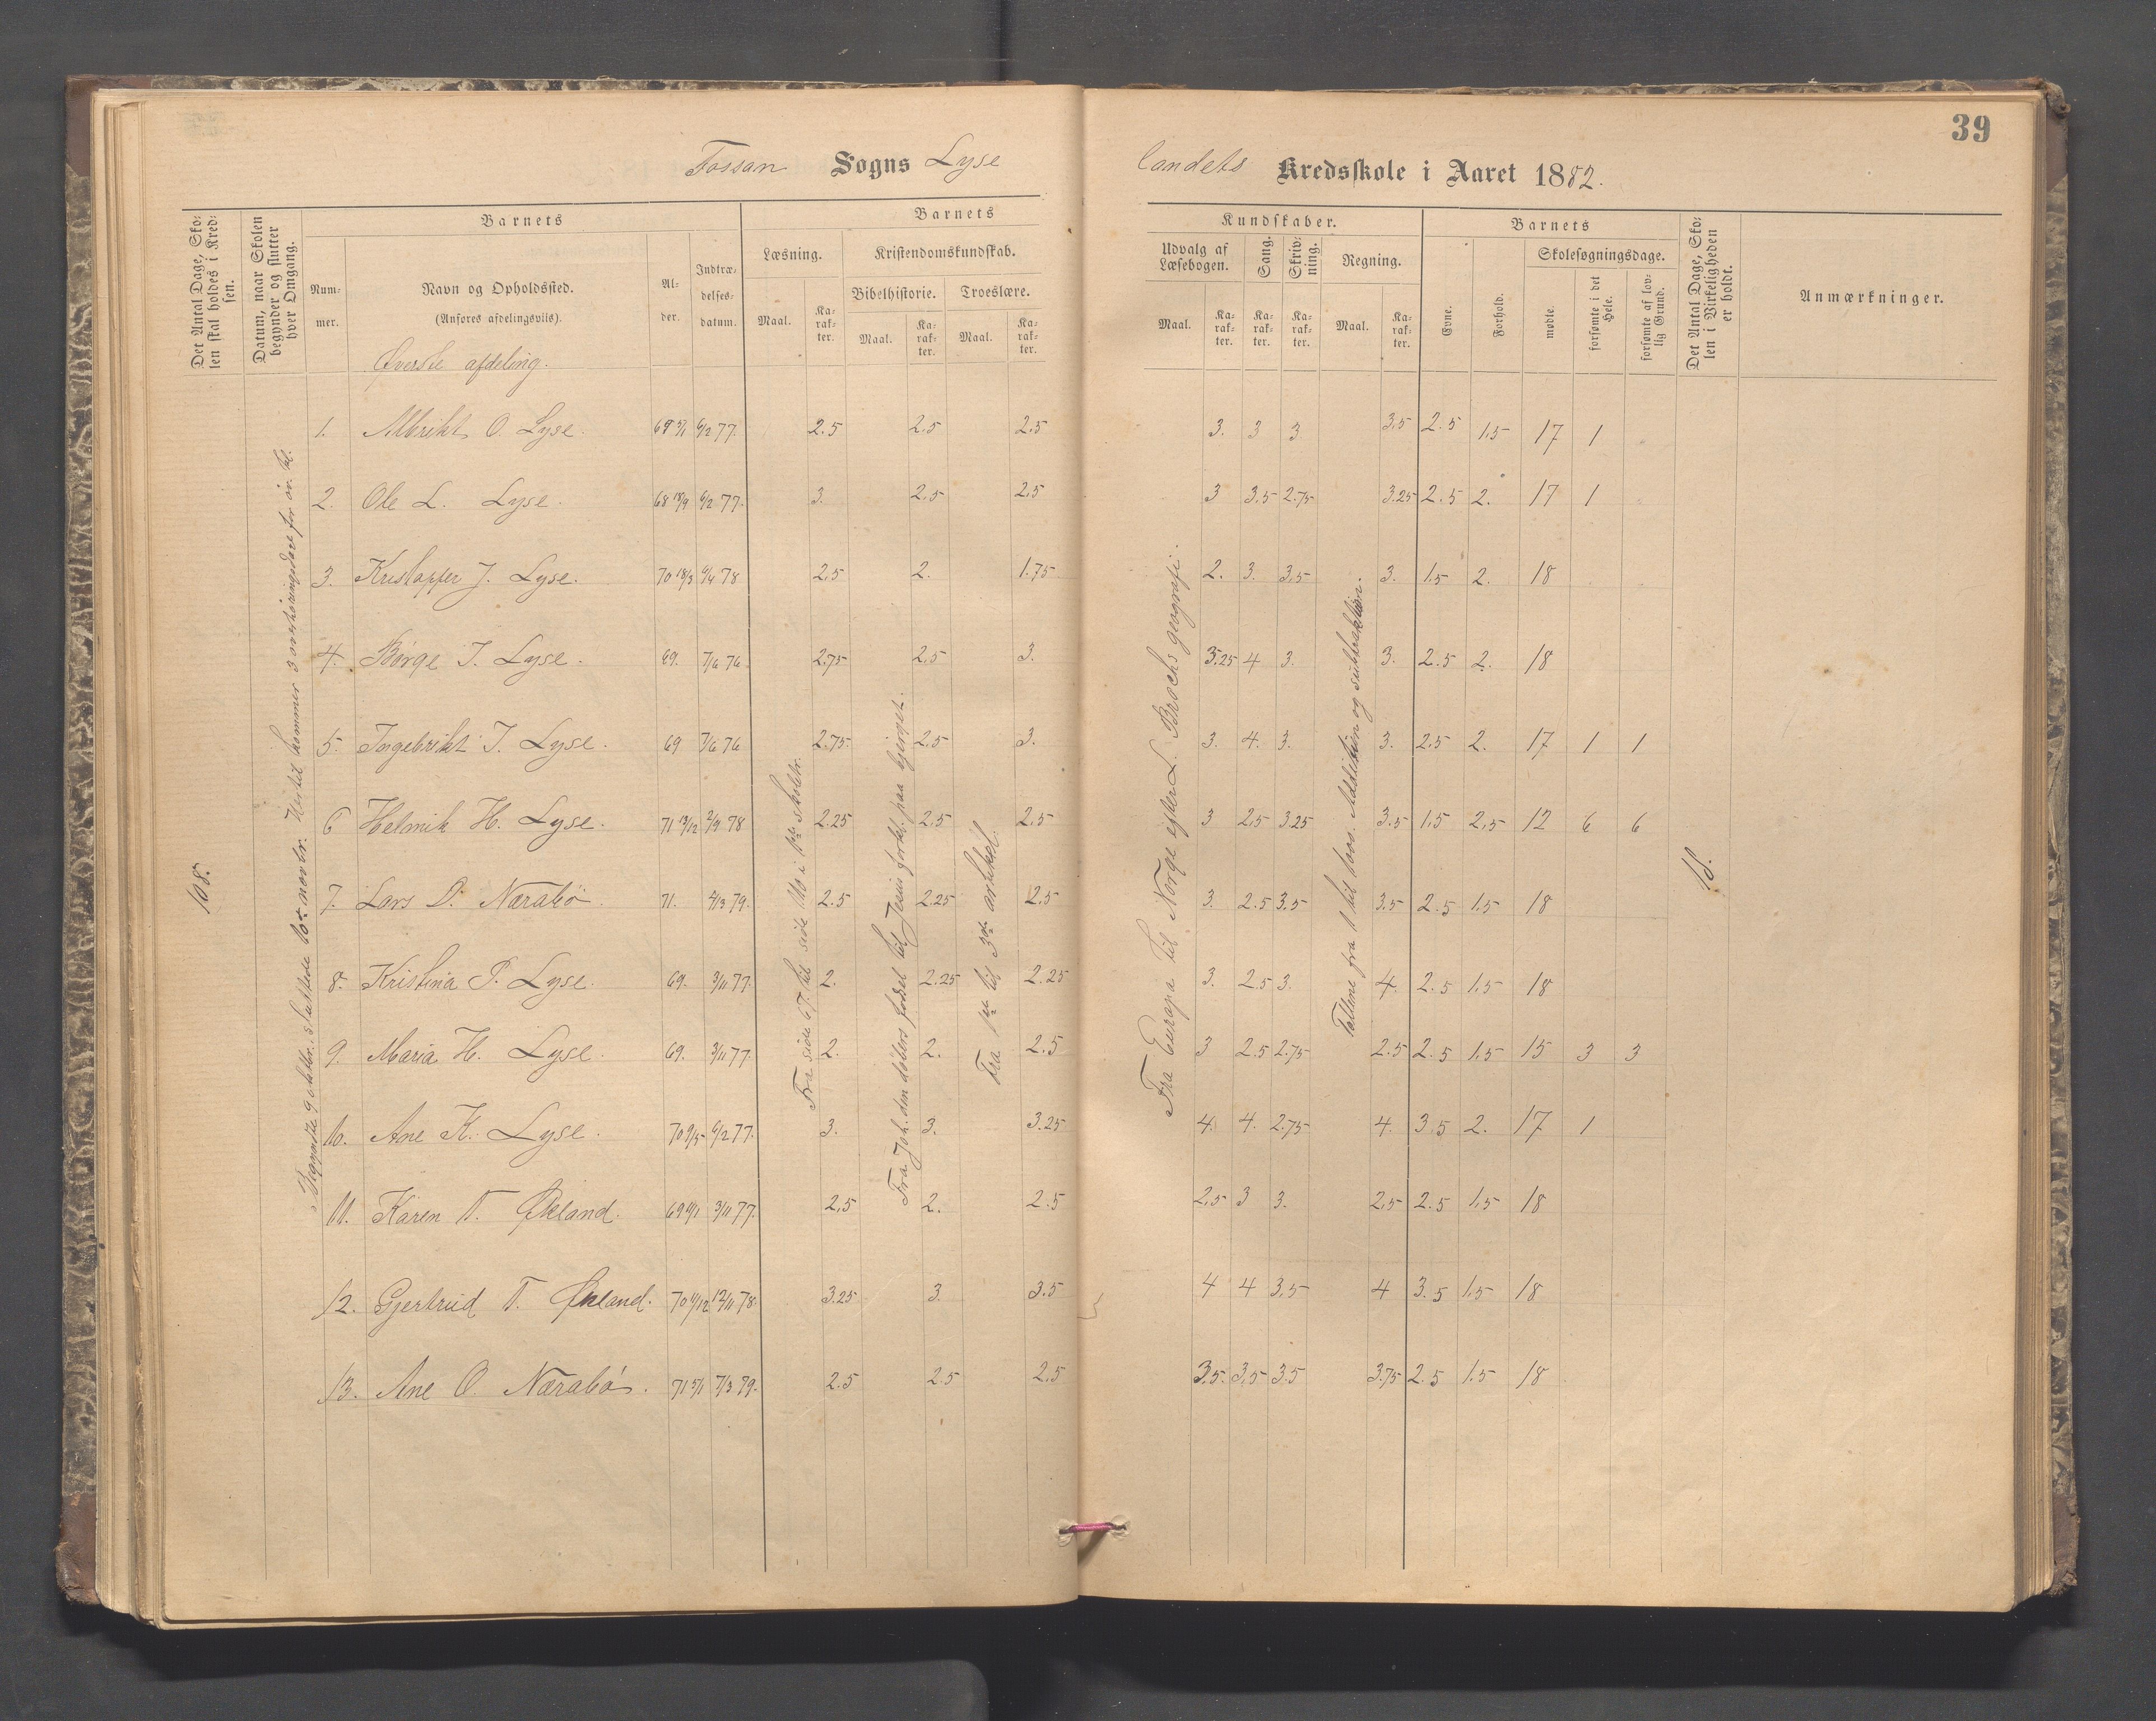 39
Fossan Sogns Lyse
landets Kredsskole i Aaret 1882.
Det Antal Dage, Sko-
len skal holdes i Kred-
sen.
Datum, naar Skolen
begynder og slutter
hver Omgang.
Barnets
Num-
mer.
Navn og Opholdssted.
(Anføres afdelingsviis).
Al-
der.
Indtræ-
delses-
datum.
Barnets
Læsning.
Kristendomskundskab.
Bibelhistorie. Troeslære.
Maal. Ka-
rak-
ter.
Maal. Ka-
rak-
ter.
Maal. Ka-
rak-
ter.
Kundskaber.
Udvalg af
Læsebogen.
Sang.
Skriv-
ning.
Regning.
Maal. Ka-
rak-
ter.
Ka-
rak-
ter.
Ka-
rak-
ter.
Maal. Ka-
rak-
ter.
Barnets
Evne.
Forhold.
Skolesøgningsdage.
mødte.
forsømte i det
Hele.
forsømte af lov-
lig Grund.
Det Antal Dage, Sko-
len i Virkeligheden
er holdt.
Anmærkninger.
Øverste afdeling.
1. Albrikt O. Lyse. 69 6/2 77. 2.5 2.5 2.5 3. 3 3 3.5 2.5 1.5 17 1
2. Ole L. Lyse. 68 18/9 6/2 77. 3. 2.5 2.5 3 3.5 2.75 3.25 2.5 2. 17 1
3. Kristoffer J. Lyse. 70 18/3 9/4 78 2.5 2. 1.75 2. 3. 3.5 3. 1.5 2. 18
4. Børge T. Lyse. 69. 7/6 76. 2.75 2.5 3. 3.25 4 3. 3. 2.5 2. 18
5. Ingebrikt T. Lyse. 69 7/6 76 2.75. 2.5 3. 3. 4. 3. 3. 2.5 2. 17 1 1
6 Helmik H. Lyse. 71 13/12 2/9 78 2.25 2.5 2.5 3 2.5 3.25 3.5 1.5 2.5 12 6 6
7. Lars D. Nærabø. 71. 4/3 79. 2.5 2.25 2.5 3. 2.5 3.5 3.5 2.5 1.5 18
8. Kristina P. Lyse. 69. 3/11 77. 2. 2.25 2.25 3. 2.5 3. 4. 2.5 1.5 18
9. Maria H. Lyse. 69. 3/11 77. 2. 2. 2.5 3 2.5 2.75 2.5 2.5 1.5 15 3 3
10. Ane K. Lyse. 70 9/5 6/2 77. 3. 3. 3.25 4. 4. 2.75 4. 3.5 2. 17 1
11. Karen T. Økland. 69 3/11 77. 2.5 2. 2.5 2.5 3 3. 2.5 2.5 1.5 18
12. Gjertrud T. Økland. 70 12/11 78. 3.25 3. 3.5 4 4 3.5 4 3.5 1.5 18
13. Ane O. Nærabø. 71 7/3 79. 2.5 2.5 2.5 3.5. 3.5 3.5 3.75 2.5 1.5 18
108.
Begyndte 9 oktbr., sluttede 10de novbr. Hertil kommer 3 overhøringsdage for øv. kl.
Fra side 67 til side 110 i 1ste skoletr.
Fra Joh. den døbers fødsel til Jesu forkl. paa bjerget.
Fra 1ste til 3die artikel.
Fra Europa til Norge efter L. Brochs geografi.
Tallene fra 1 til 1000. Addition og subtraktion.
18.